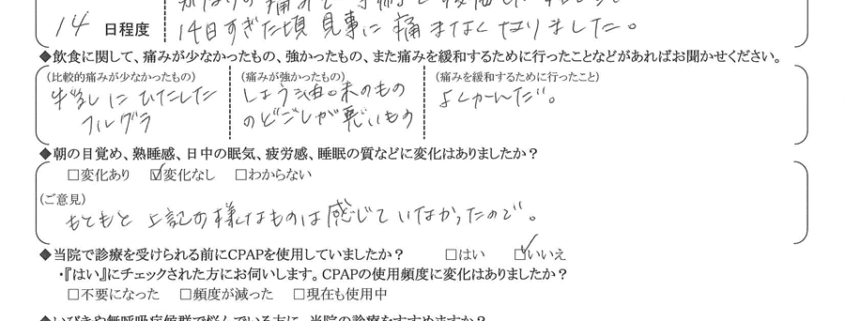 14 日程度
14日すぎた頃 見事に痛まなくなりました。
◆飲食に関して、痛みが少なかったもの、強かったもの、また痛みを緩和するために行ったことなどがあればお聞かせください。
(比較的痛みが少なかったもの) (痛みが強かったもの) (痛みを緩和するために行ったこと)
牛乳にひたした しょう油味のもの よくかんだ。
フルグラ のどごしが悪いもの
◆朝の目覚め、熟睡感、日中の眠気、疲労感、睡眠の質などに変化はありましたか？
□変化あり ☑変化なし □わからない
(ご意見)
もともと上記の様なものは感じていなかったので。
◆当院で診療を受けられる前にCPAPを使用していましたか？ □はい ☑いいえ
・『はい』にチェックされた方にお伺いします。CPAPの使用頻度に変化はありましたか？
□不要になった □頻度が減った □現在も使用中
◆いびきや無呼吸症候群で悩んでいる方に、当院の診療をすすめますか？